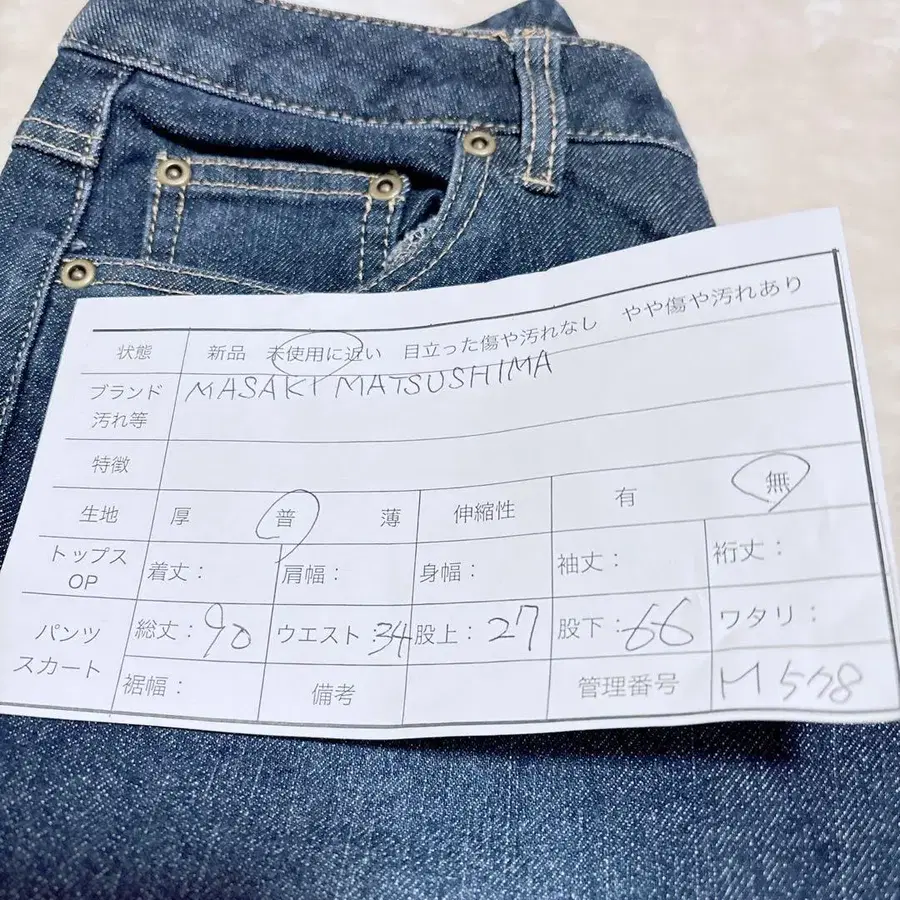 状態 新品 未使用に近い 目立った傷や汚れなし やや傷や汚れあり
ブランド MASAKI MATSUSHIMA
汚れ等
特徴
生地 厚 普 薄 伸縮性 有 無
トップス
OP 着丈： 肩幅： 身幅： 袖丈： 裄丈：
パンツ 総丈：90 ウエスト：34 股上：27 股下：66 ワタリ：
スカート 裾幅： 備考 管理番号 M578